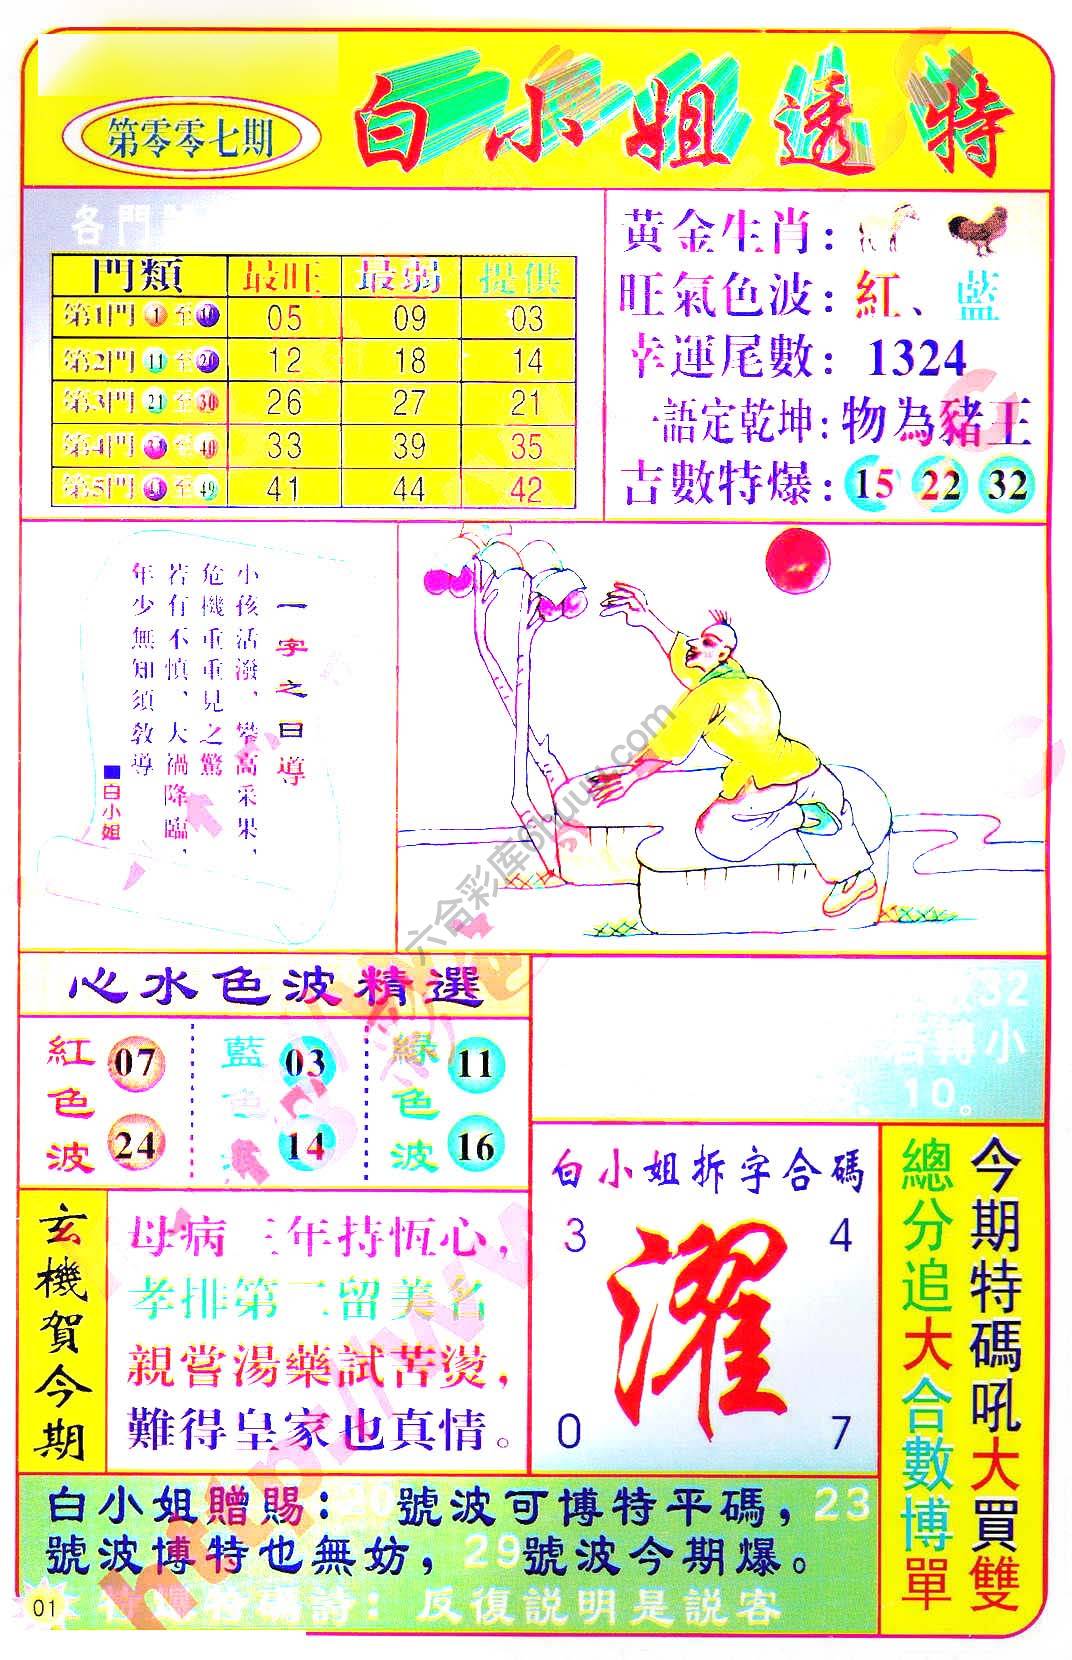 第零零七期
白小姐透特
各門
門類 最旺 最弱 提供
第1門 1 至 10 05 09 03
第2門 11 至 20 12 18 14
第3門 21 至 30 26 27 21
第4門 31 至 40 33 39 35
第5門 41 至 49 41 44 42
黃金生肖：
旺氣色波：紅、藍
幸運尾數：1324
一語定乾坤：物為豬王
古數特爆：15 22 32
一字之曰導
小孩活潑、攀高采果、
危機重重見之驚
若有不慎、大禍降臨、
年少無知須教導
■白小姐
六合彩库
心水色波精選
紅色波 07 24
藍色波 03 14
綠色波 11 16
32
轉小
、10。
白小姐拆字合碼
3 4
濯
0 7
今期特碼吼大買雙
總分追大合數博單
玄機賀今期
母病三年持恆心，
孝排第二留美名
親嘗湯藥試苦燙，
難得皇家也真情。
白小姐贈賜：20號波可博特平碼，23
號波博特也無妨，29號波今期爆。
特碼詩：反復説明是説客
01